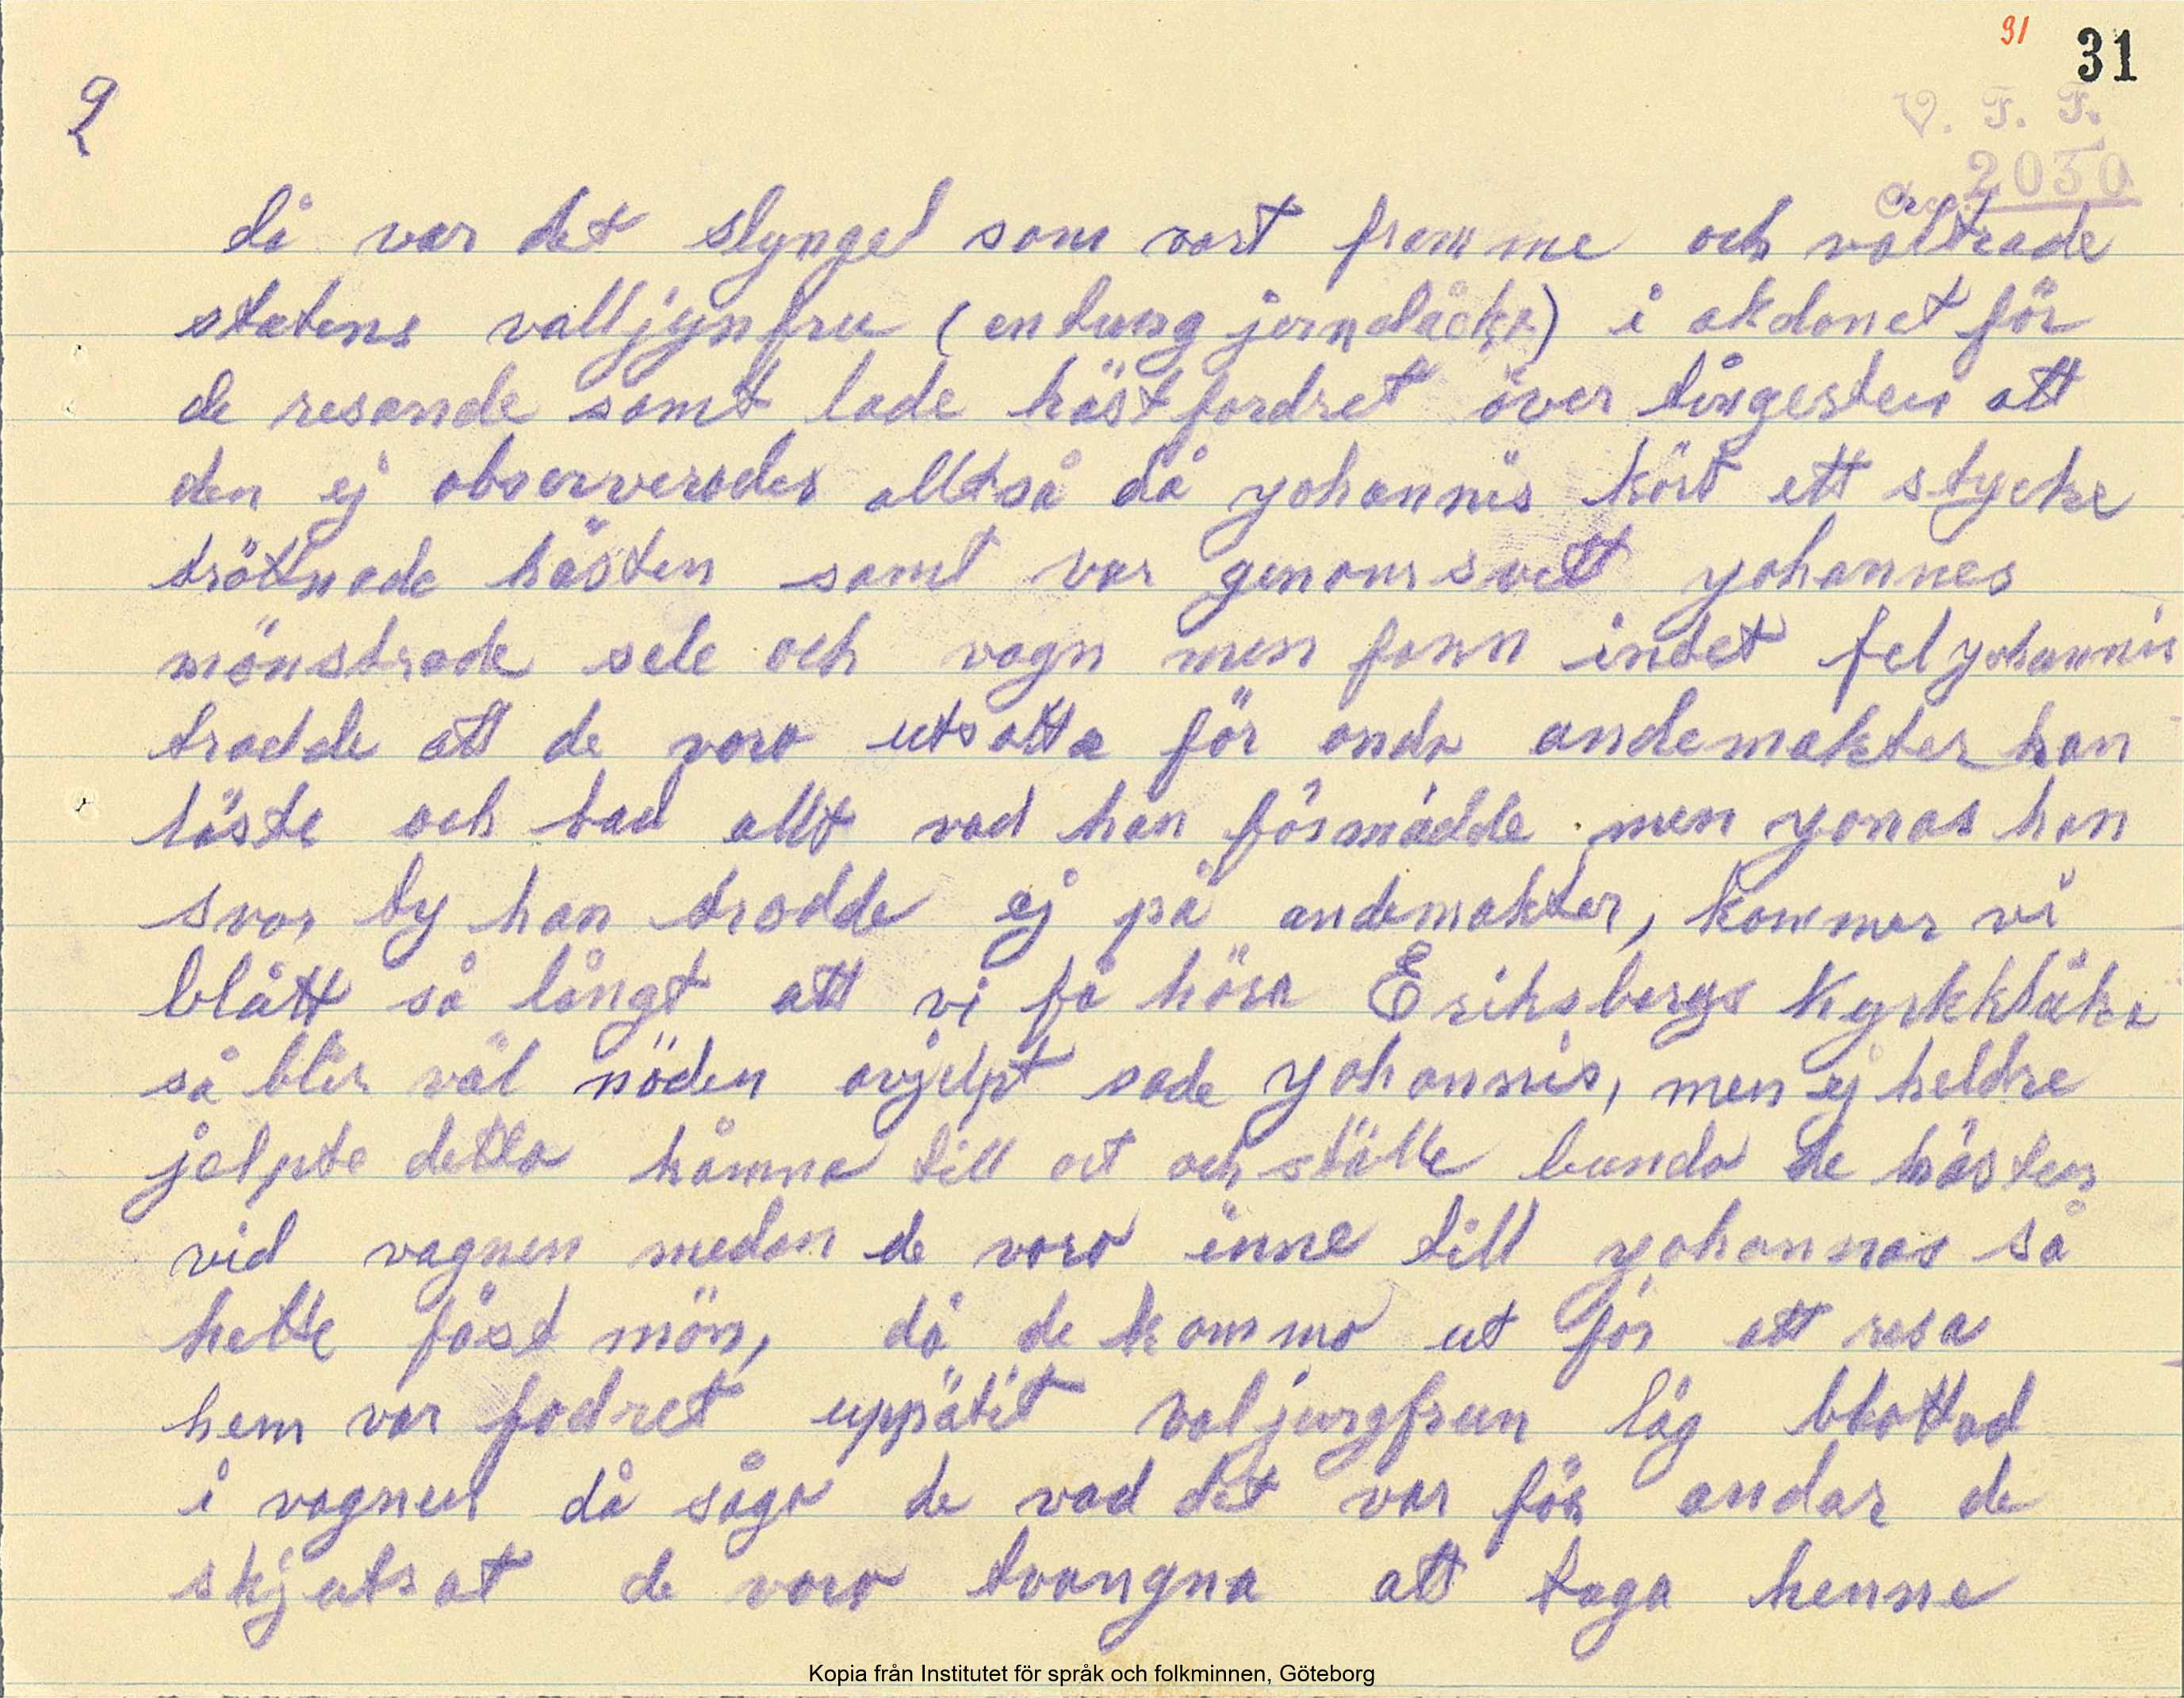 31 31
2
V. F. F.
Acc. 2030
då var det slyngel som vart framme och vältrade
statens valljynfru (en tung jernclåcka) i åkdonet för
de resande samt lade hästfordret över tingesten att
den ej observerades alltså då yohannis kört ett stycke
tröttnade hästen samt var genomsvett yohannes
mönstrade sele och vagn men fann intet fel yohannis
trodde att de voro utsatta för onda andemakter han
läste och bad allt vad han förmådde men yonas han
svor ty han trodde ej på andemakter, kommer vi
blått så långt att vi få höra Eriksbergs Kyrkklåka
så blir väl nöden avjelpt sade yohannis, men ej heldre
jelpte detta hämne till ort och ställe bunda de hästen
vid vagnen medan de voro inne till yohannas så
hette fäst mön, då de kommo ut för att resa
hem var fodret uppätit valjungfrun låg blottad
i vagnen då sågo de vad det var för andar de
skjutsat de voro tvangna att taga henne
Kopia från Institutet för språk och folkminnen, Göteborg